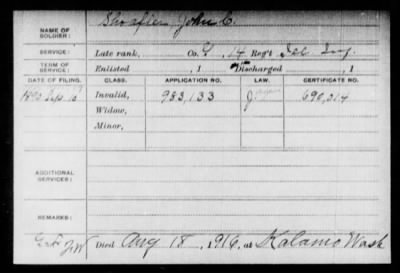 NAME OF SOLDIER: Shoafler John C.
SERVICE: Late rank, Co. G, 14 Reg't Ill Inf.
TERM OF SERVICE: Enlisted , 1 Discharged , 1
DATE OF FILING. CLASS. APPLICATION NO. LAW. CERTIFICATE NO.
1890 Sep 13 Invalid, 983,133 J. 690,314
Widow,
Minor,
ADDITIONAL SERVICES:
REMARKS:
Died Aug 18, 1916, at Kalama Wash